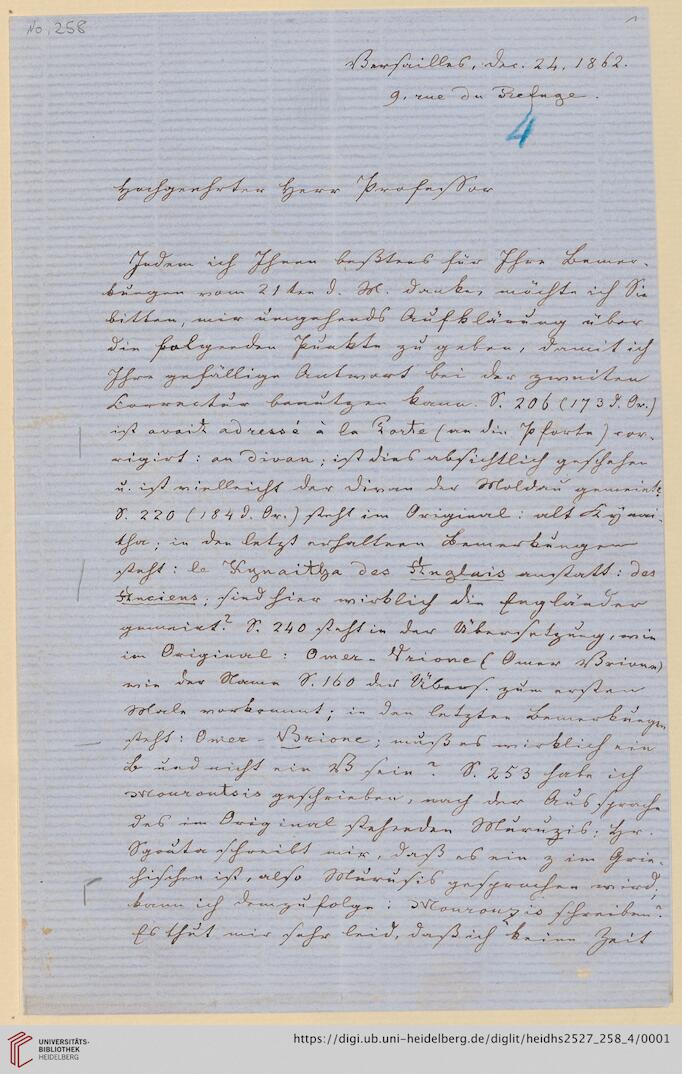 No. 258
1
Versailles, Dec. 24. 1862.
9. rue du Refuge.
4
Hochgeehrter Herr Professor
Indem ich Ihnen beßtens für Ihre Bemer-
kungen vom 21ten d. M. danke, möchte ich Sie
bitten, mir umgehends Aufklärung über
die folgenden Punkte zu geben, damit ich
Ihre gefällige Antwort bei der zweiten
Correctur benutzen kann. S. 206 (173 d. Or.)
ist avait adressé à la Porte (an die Pforte) cor-
rigirt: au divan; ist dies absichtlich geschehen
u. ist vielleicht der Divan der Moldau gemeint?
S. 220 (184 d. Or.) steht im Original: alt Kynai-
tha; in den letzt erhaltnen Bemerkungen
steht: le Kynaitha des Anglais anstatt: des
Anciens; sind hier wirklich die Engländer
gemeint? S. 240 steht in der Übersetzung, wie
im Original: Omer-Vrione (Omer Vrione)
wie der Name S. 160 der Übers. zum ersten
Male vorkommt; in den letzten Bemerkungen
steht: Omer-Brione; muß es wirklich ein
B und nicht ein V sein? S. 253 habe ich
Mouroutsis geschrieben, nach der Aussprache
des im Original stehenden Muruzis; Hr.
Sgouta schreibt mir, daß es ein z im Grie-
chischen ist, also Murusis gesprochen wird;
kann ich demzufolge: Mourouzis schreiben?
Es thut mir sehr leid, daß ich keine Zeit
UNIVERSITÄTS-
BIBLIOTHEK
HEIDELBERG
https://digi.ub.uni-heidelberg.de/diglit/heidhs2527_258_4/0001